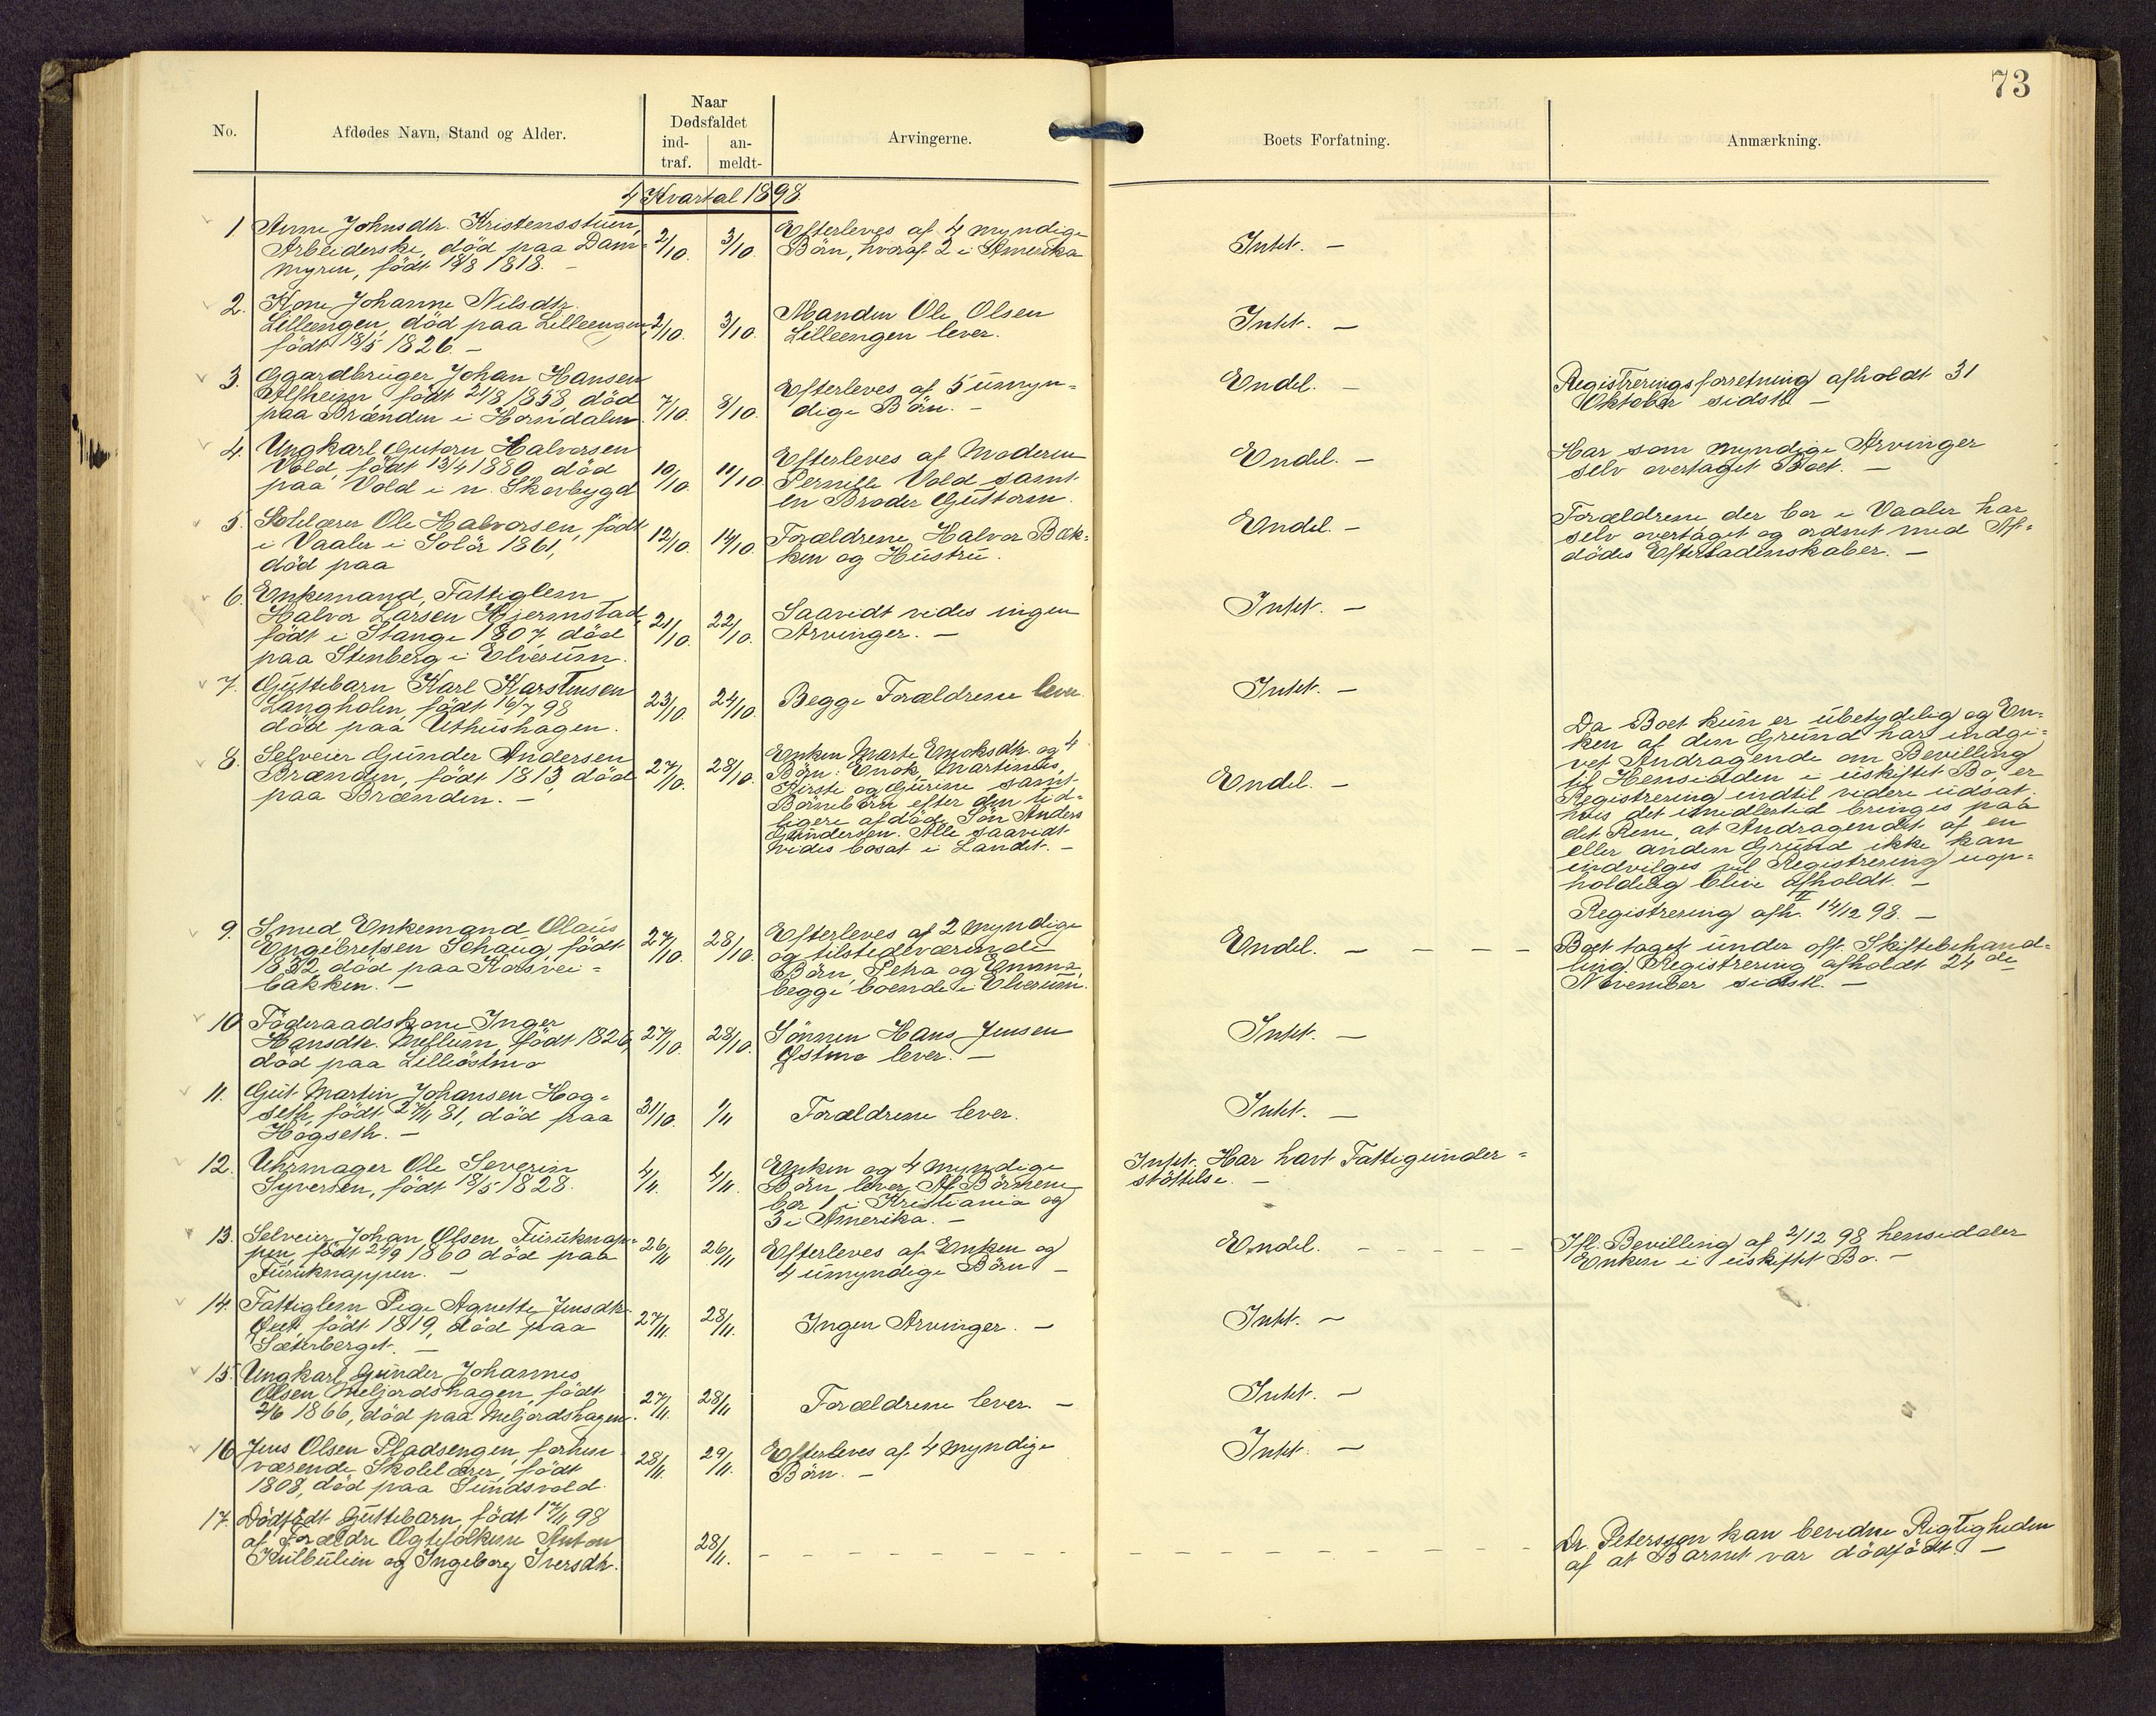 73
No.
Afdødes Navn, Stand og Alder.
Naar
Dødsfaldet
ind-
traf.
an-
meldt-
Arvingerne.
Boets Forfatning.
Anmærkning.
4 Kvartal 1898.
1 Anne Johnsdtr. Kristensstuen,
Arbeiderske, död paa Dam-
myren, födt 18/8 1818. -
2/10. 3/10.
Efterleves af 4 myndige
Börn, hvoraf 2 i Amerika
Intet. -
2. Kone Johanne Nilsdtr.
Lilleengen, död paa Lilleengen,
födt 18/5 1826. -
2/10. 3/10.
Manden Ole Olsen
Lilleengen lever.
Intet. -
3. Gaardbruger Johan Hansen
Alfheim födt 21/8 1858 död
paa Brænden i Horndalen.
7/10. 8/10.
Efterleves af 5 umyn-
dige Börn. -
Endel. -
Registreringsforretning afholdt 31
Oktober sidstl. -
4. Ungkarl Gutorm Halvorsen
Vold, födt 13/4 1880, död
paa Vold i n. Skovbygd
10/10. 11/10.
Efterleves af Moderen
Pernille Vold samt
en Broder Guttorm.
Endel. -
Har som myndige Arvinger
selv overtaget Boet. -
5. Skolelærer Ole Halvorsen, födt
i Vaaler i Solör 1861,
död paa
12/10. 14/10.
Forældrene Halvor Bæk-
ken og Hustru.
Endel. -
Forældrene der bor i Vaaler har
selv overtaget og ordnet med Af-
dödes Efterladenskaber. -
6. Enkemand, Fattiglem
Halvor Larsen Hjermstad,
födt i Stange 1807, död
paa Stenberg i Elverum.
21/10. 22/10.
Saavidt vides ingen
Arvinger. -
Intet. -
7. Guttebarn Karl Karstensen
Langholen, födt 16/7 98
död paa Uthushagen.
23/10. 24/10.
Begge Forældrene lever.
Intet. -
8. Selveier Gunder Andersen
Brænden, födt 1813, död
paa Brænden. -
27/10. 28/10.
Enken Marte Enoksdtr. og 4
Börn: Enok, Martinus,
Kirsti og Gurine samt
Börnebörn efter den tid-
ligere afdöde Sön Anders
Gundersen. Alle saavidt
vides bosat i Landet. -
Endel. -
Da Boet kun er ubetydelig og En-
ken af den Grund har indgi-
vet Andragende om Bevilling
til Hensidden i uskiftet Bo, er
Registrering indtil videre udsat.
hvis det imidlertid bringes paa
det Rene, at Andragendet af en
eller anden Grund ikke kan
indvilges vil Registrering uop-
holdelig blive afholdt. -
Registrering afh. 14/12 98. -
9. Smed Enkemand Olaus
Engebretsen Schaug, födt
1832, död paa Korsvei-
bakken. -
27/10. 28/10.
Efterleves af 2 myndige
og tilstedeværende
Börn, Petra og Emma,
begge boende i Elverum.
Endel. - - - -
Boet taget under off. Skiftebehand-
ling. Registrering afholdt 24de
November sidstl. -
10 Föderaadskone Inger
Hansdtr. Mellum, födt 1826,
död paa Lilleöstmo
27/10. 28/10.
Sönnen Hans Jensen
Østmo lever. -
Intet. -
11. Gut Martin Johansen Hog-
seth, födt 27/11 81, död paa
Hogseth. -
31/10. 1/11
Forældrene lever.
Intet. -
12. Uhrmager Ole Severin
Syversen, födt 18/5 1828.
4/11. 4/11.
Enken og 4 myndige
Börn lever. Af Börnene
bor 1 i Kristiania og
3 i Amerika. -
Intet. Har havt Fattigunder-
stöttelse. -
13. Selveier Johan Olsen Furuknap-
pen, födt 27/9 1860 död paa
Furuknappen. -
26/11 26/11
Efterleves af Enken og
4 umyndige Börn -
Endel. - - - - -
Ifl. Bevilling af 2/12 98 hensidder
Enken i uskiftet Bo. -
14. Fattiglem Pige Agnette Jensdtr.
födt 1819, död paa
Sæterberget. -
27/11. 28/11.
Ingen Arvinger. -
Intet. -
15. Ungkarl Gunder Johannes
Olsen Meljordshagen, födt
2/6 1866, död paa Meljordshagen.
27/11. 28/11
Forældrene lever. -
Intet. -
16. Jens Olsen Pladsengen, forhen-
værende Skolelærer, födt
1808, död paa Sundsvold.
28/11. 29/11.
Efterleves af 4 myndige
Börn. -
Intet. -
17. Dödfödt Guttebarn, födt 17/11 98
af Forældre Ægtefolkene Anton
Kulbulien og Ingeborg Iversdtr.
28/11.
- - - - - - - - - - - - - - - -
Dr. Petersson kan bevidne Rigtigheden
af at Barnet var dödfödt. -